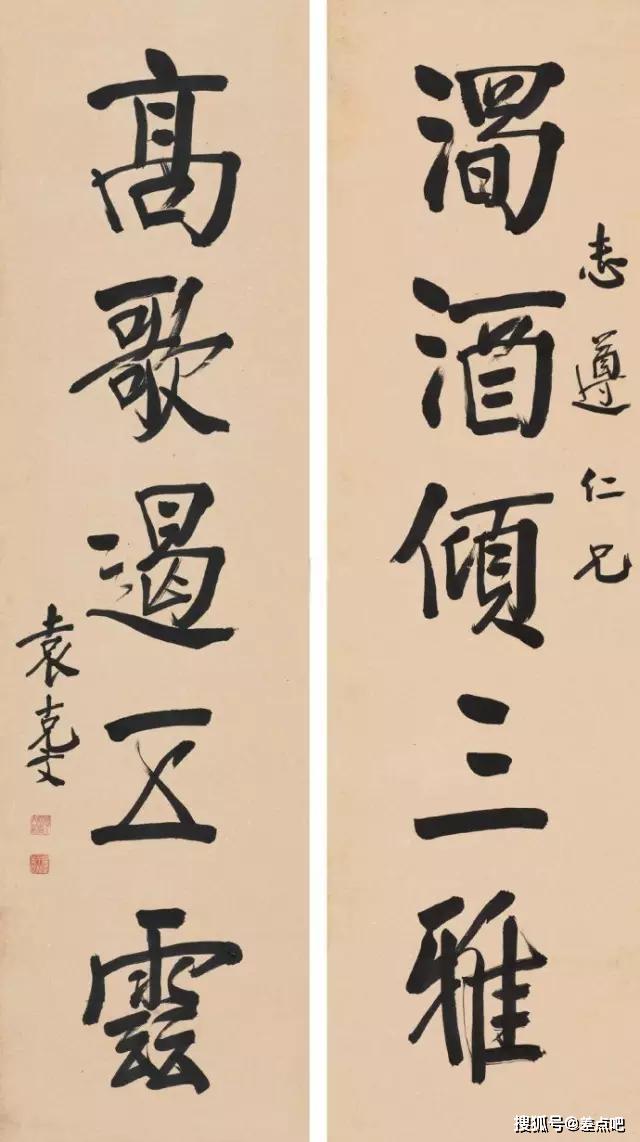 濁酒傾三雅
志遵仁兄
高歌遏五雲
袁克文
搜狐号@差点吧